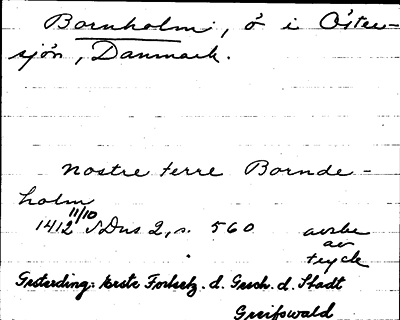 Bornholm, ö i Öster-
sjön, Danmark.
nostre terre Bornde-
holm
11/10
1412 SDns 2, s. 560 avskr
av
tryck
Gesterding: Erste Fortsetz. d. Gesch. d. Stadt
Greifswald